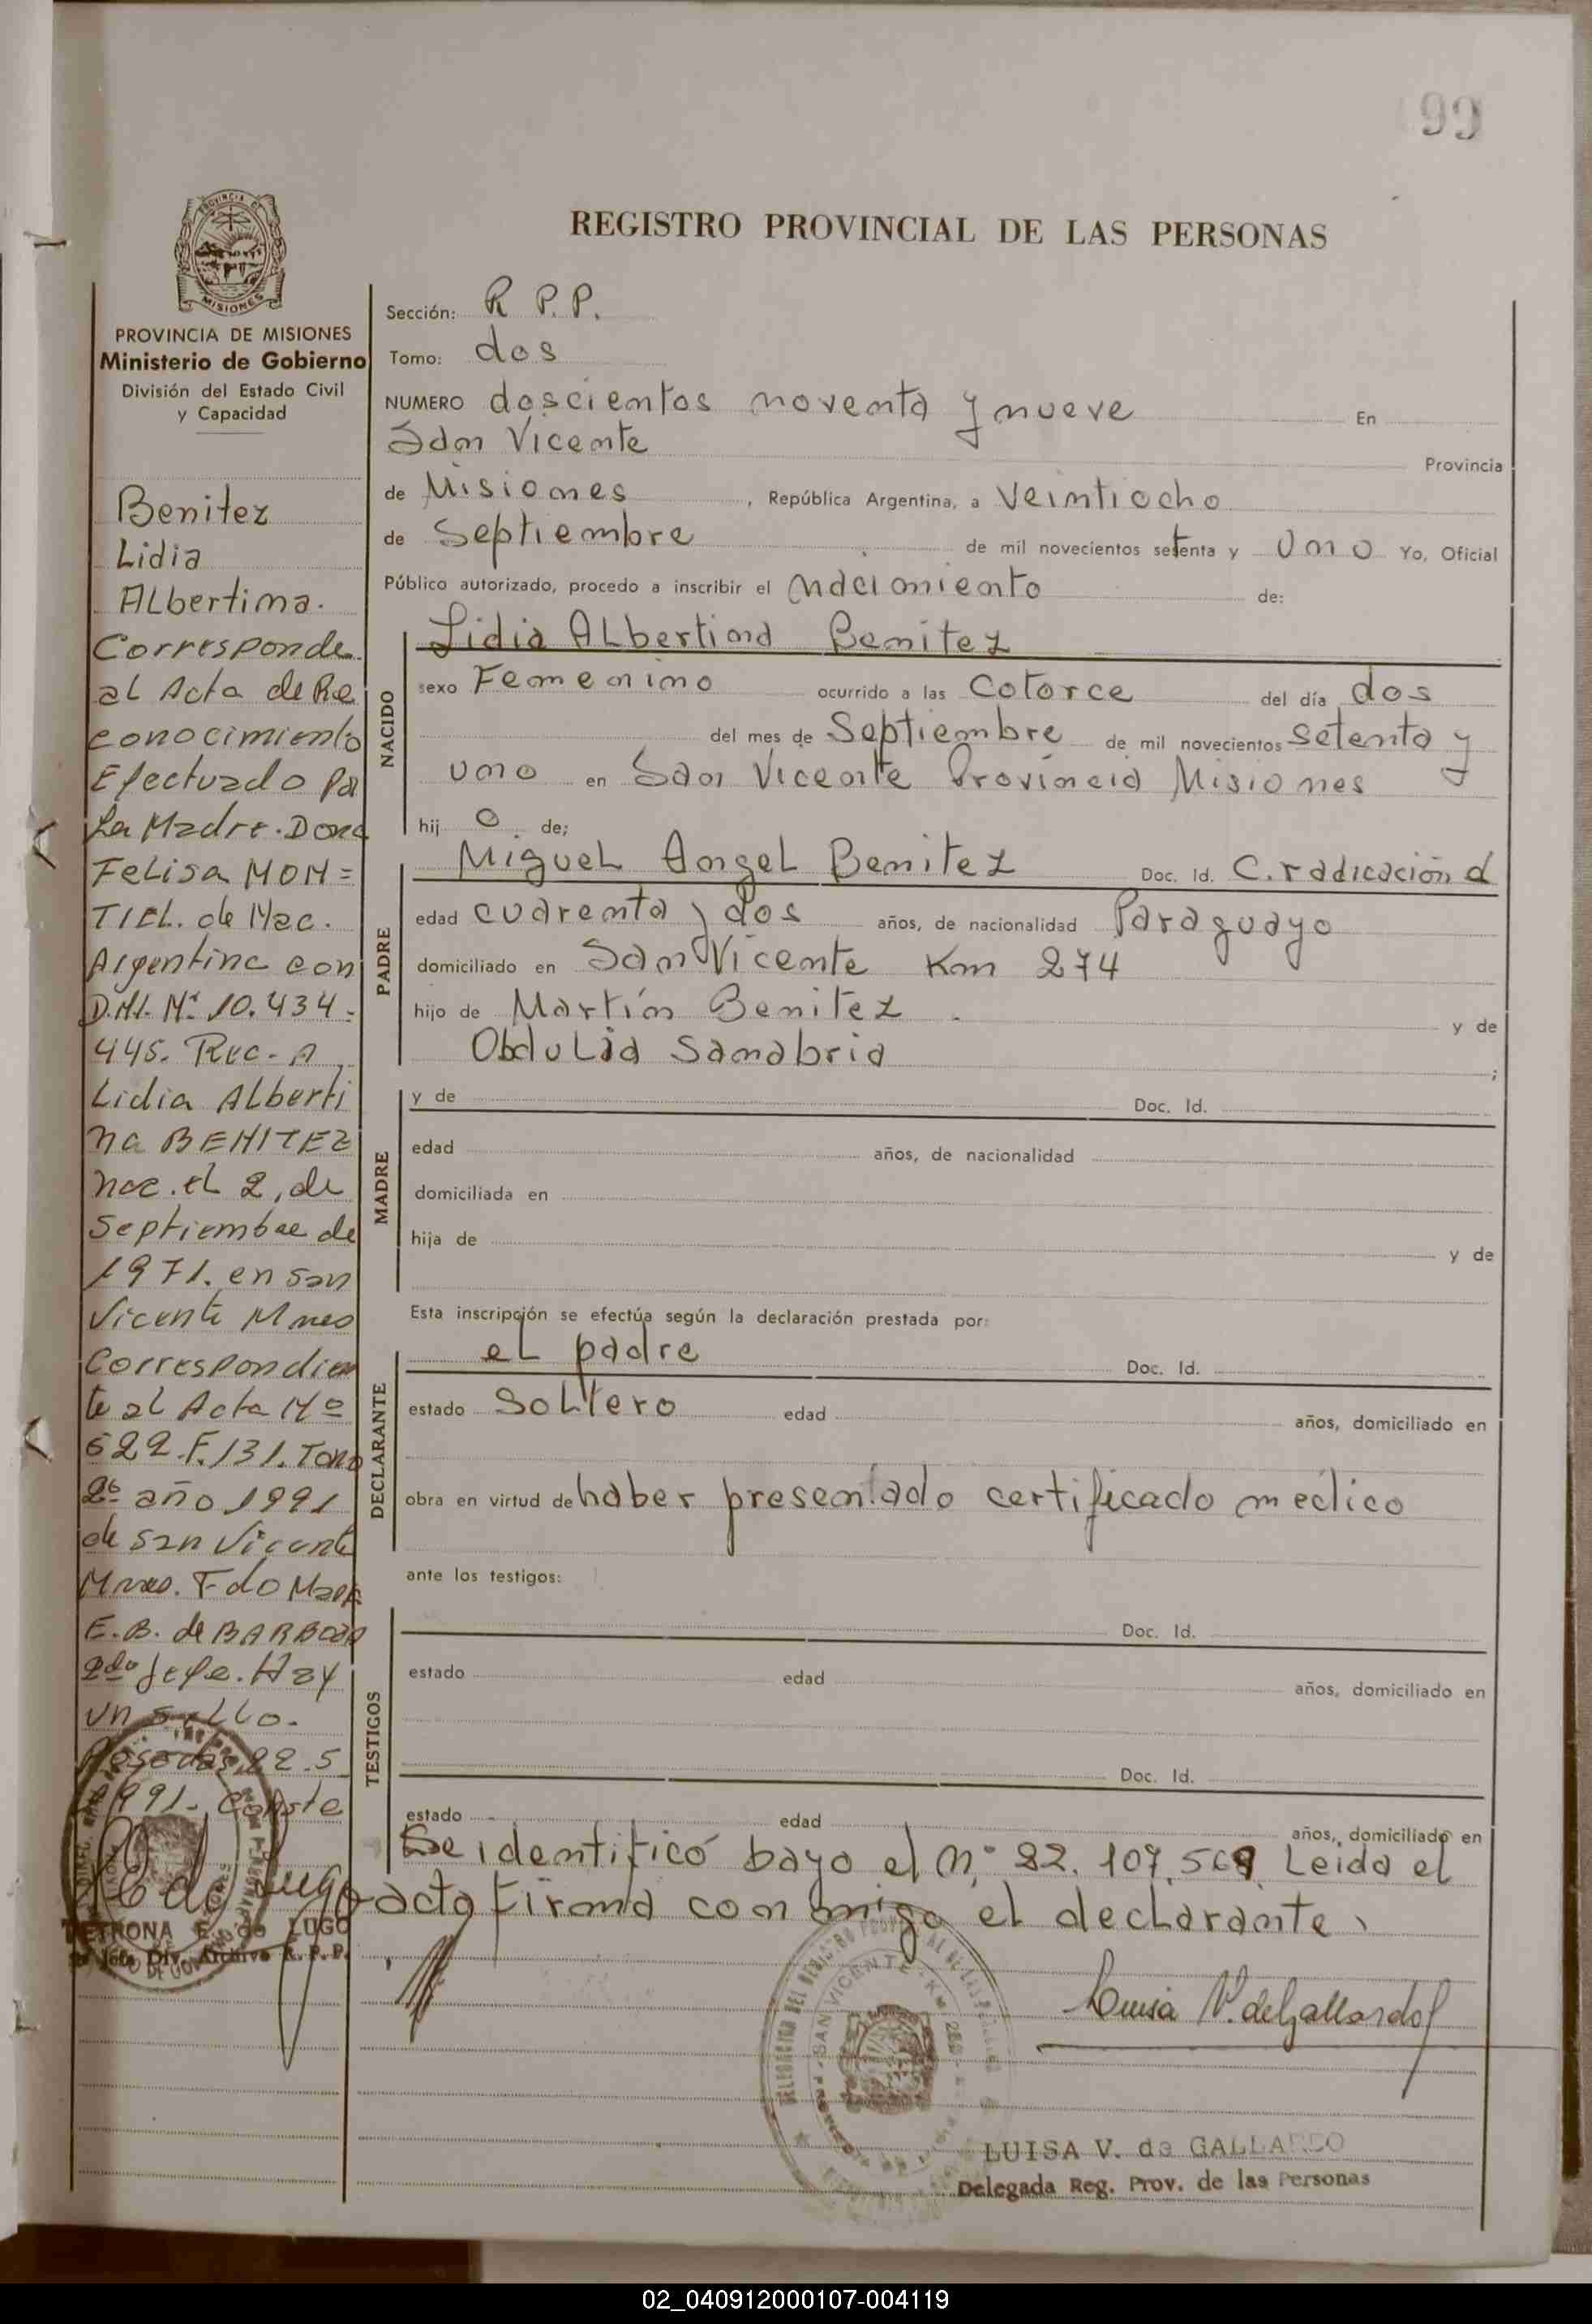 99
PROVINCIA DE
MISIONES
REGISTRO PROVINCIAL DE LAS PERSONAS
PROVINCIA DE MISIONES
Ministerio de Gobierno
División del Estado Civil
y Capacidad
Benitez
Lidia
Albertina.
Corresponde
al Acta de Re
conocimiento
Efectuado Pa
La Madre. Dona
Felisa MON=
TIEL. de Nac.
Argentina con
D.N.I. Nº 10.434-
445. Rec. A
Lidia Alberti
na BENITEZ
nac. el 2, de
Septiembre de
1971. en san
Vicente Mnes
Correspondien
te al Acta Nº
622 F. 131. Tomo
2º año 1991
de San Vicente
Mnes. Fdo
E.B. de BARBOZA
2do Jefe. Hay
un sello.
Posadas, 22.5
1991- Conste
PETRONA E. de LUGO
Jefe Div. Archivo R. P. P.
Sección: R P.P.
Tomo: dos
NUMERO doscientos noventa y nueve En
San Vicente Provincia
de Misiones, República Argentina, a Veintiocho
de Septiembre de mil novecientos setenta y Uno Yo, Oficial
Público autorizado, procedo a inscribir el nacimiento de:
NACIDO
Lidia Albertina Benitez
sexo Femenino ocurrido a las Catorce del día dos
del mes de Septiembre de mil novecientos Setenta y
uno en San Vicente Provincia Misiones
hij o de;
PADRE
Miguel Angel Benitez Doc. Id. C. radicación d
edad cuarenta y dos años, de nacionalidad Paraguayo
domiciliado en San Vicente Km 274
hijo de Martín Benitez y de
Obdulia Sanabria ;
MADRE
y de Doc. Id.
edad años, de nacionalidad
domiciliada en
hija de y de
Esta inscripción se efectúa según la declaración prestada por:
DECLARANTE
el padre Doc. Id.
estado Soltero edad años, domiciliado en
obra en virtud de haber presentado certificado medico
ante los testigos:
TESTIGOS
Doc. Id.
estado edad años, domiciliado en
Doc. Id.
estado edad años, domiciliado en
Se identificó bajo el n.º 22.107.569 Leida el
acta firma conmigo el declarante.
SAN VICENTE
Luisa V. de Gallardo
LUISA V. de GALLARDO
Delegada Reg. Prov. de las Personas
02_040912000107-004119